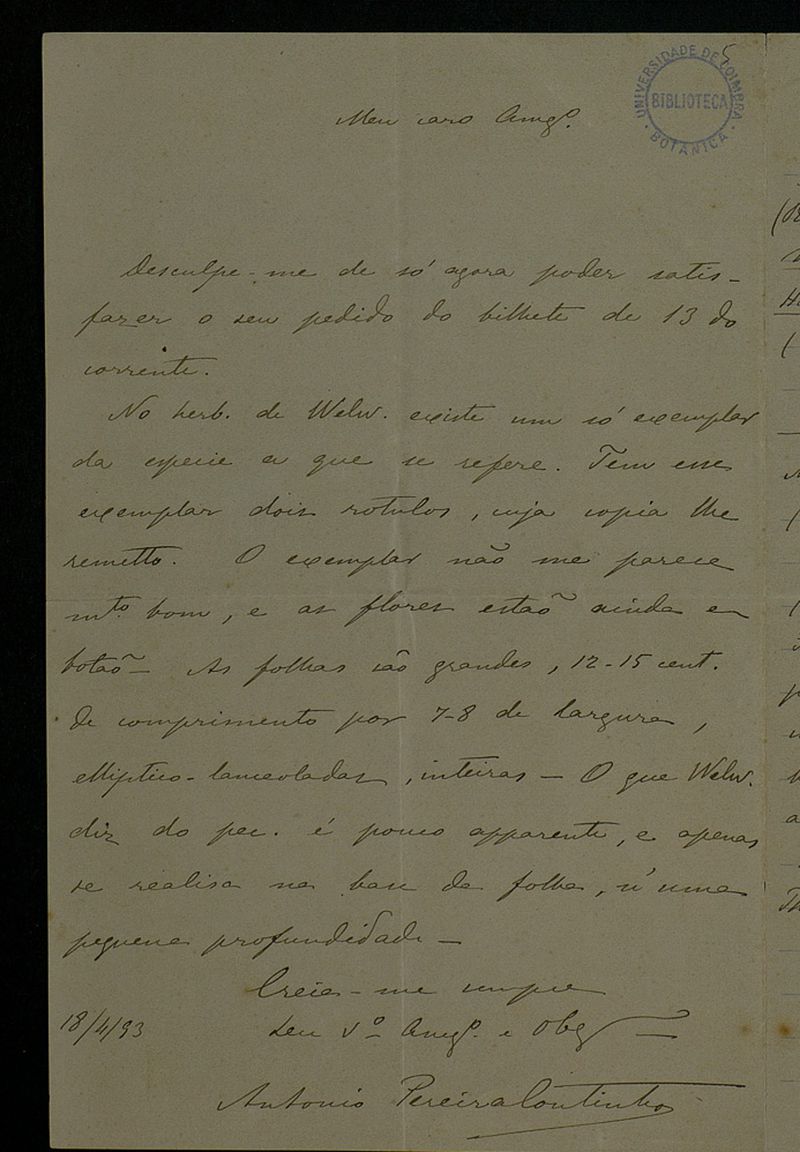 UNIVERSIDADE DE COIMBRA
BIBLIOTECA
BOTANICA
5
Meu caro Amgº.
Desculpe-me de só agora poder satis-
fazer o seu pedido do bilhete de 13 do
corrente.
No herb. de Welw. existe um só exemplar
da especie a que se refere. Tem esse
exemplar dois rotulos, cuja copia lhe
remetto. O exemplar não me parece
mtº. bom, e as flores estão ainda em
botão — As folhas são grandes, 12-15 cent.
de comprimento por 7-8 de largura,
elliptico-lanceoladas, inteiras — O que Welw.
diz do pec. é pouco apparente, e apenas
se realisa na base da folha, n'uma
pequena profundidade —
Creia-me sempre
18/4/93
Seu Amgº. e Obg
Antonio Pereira Coutinho